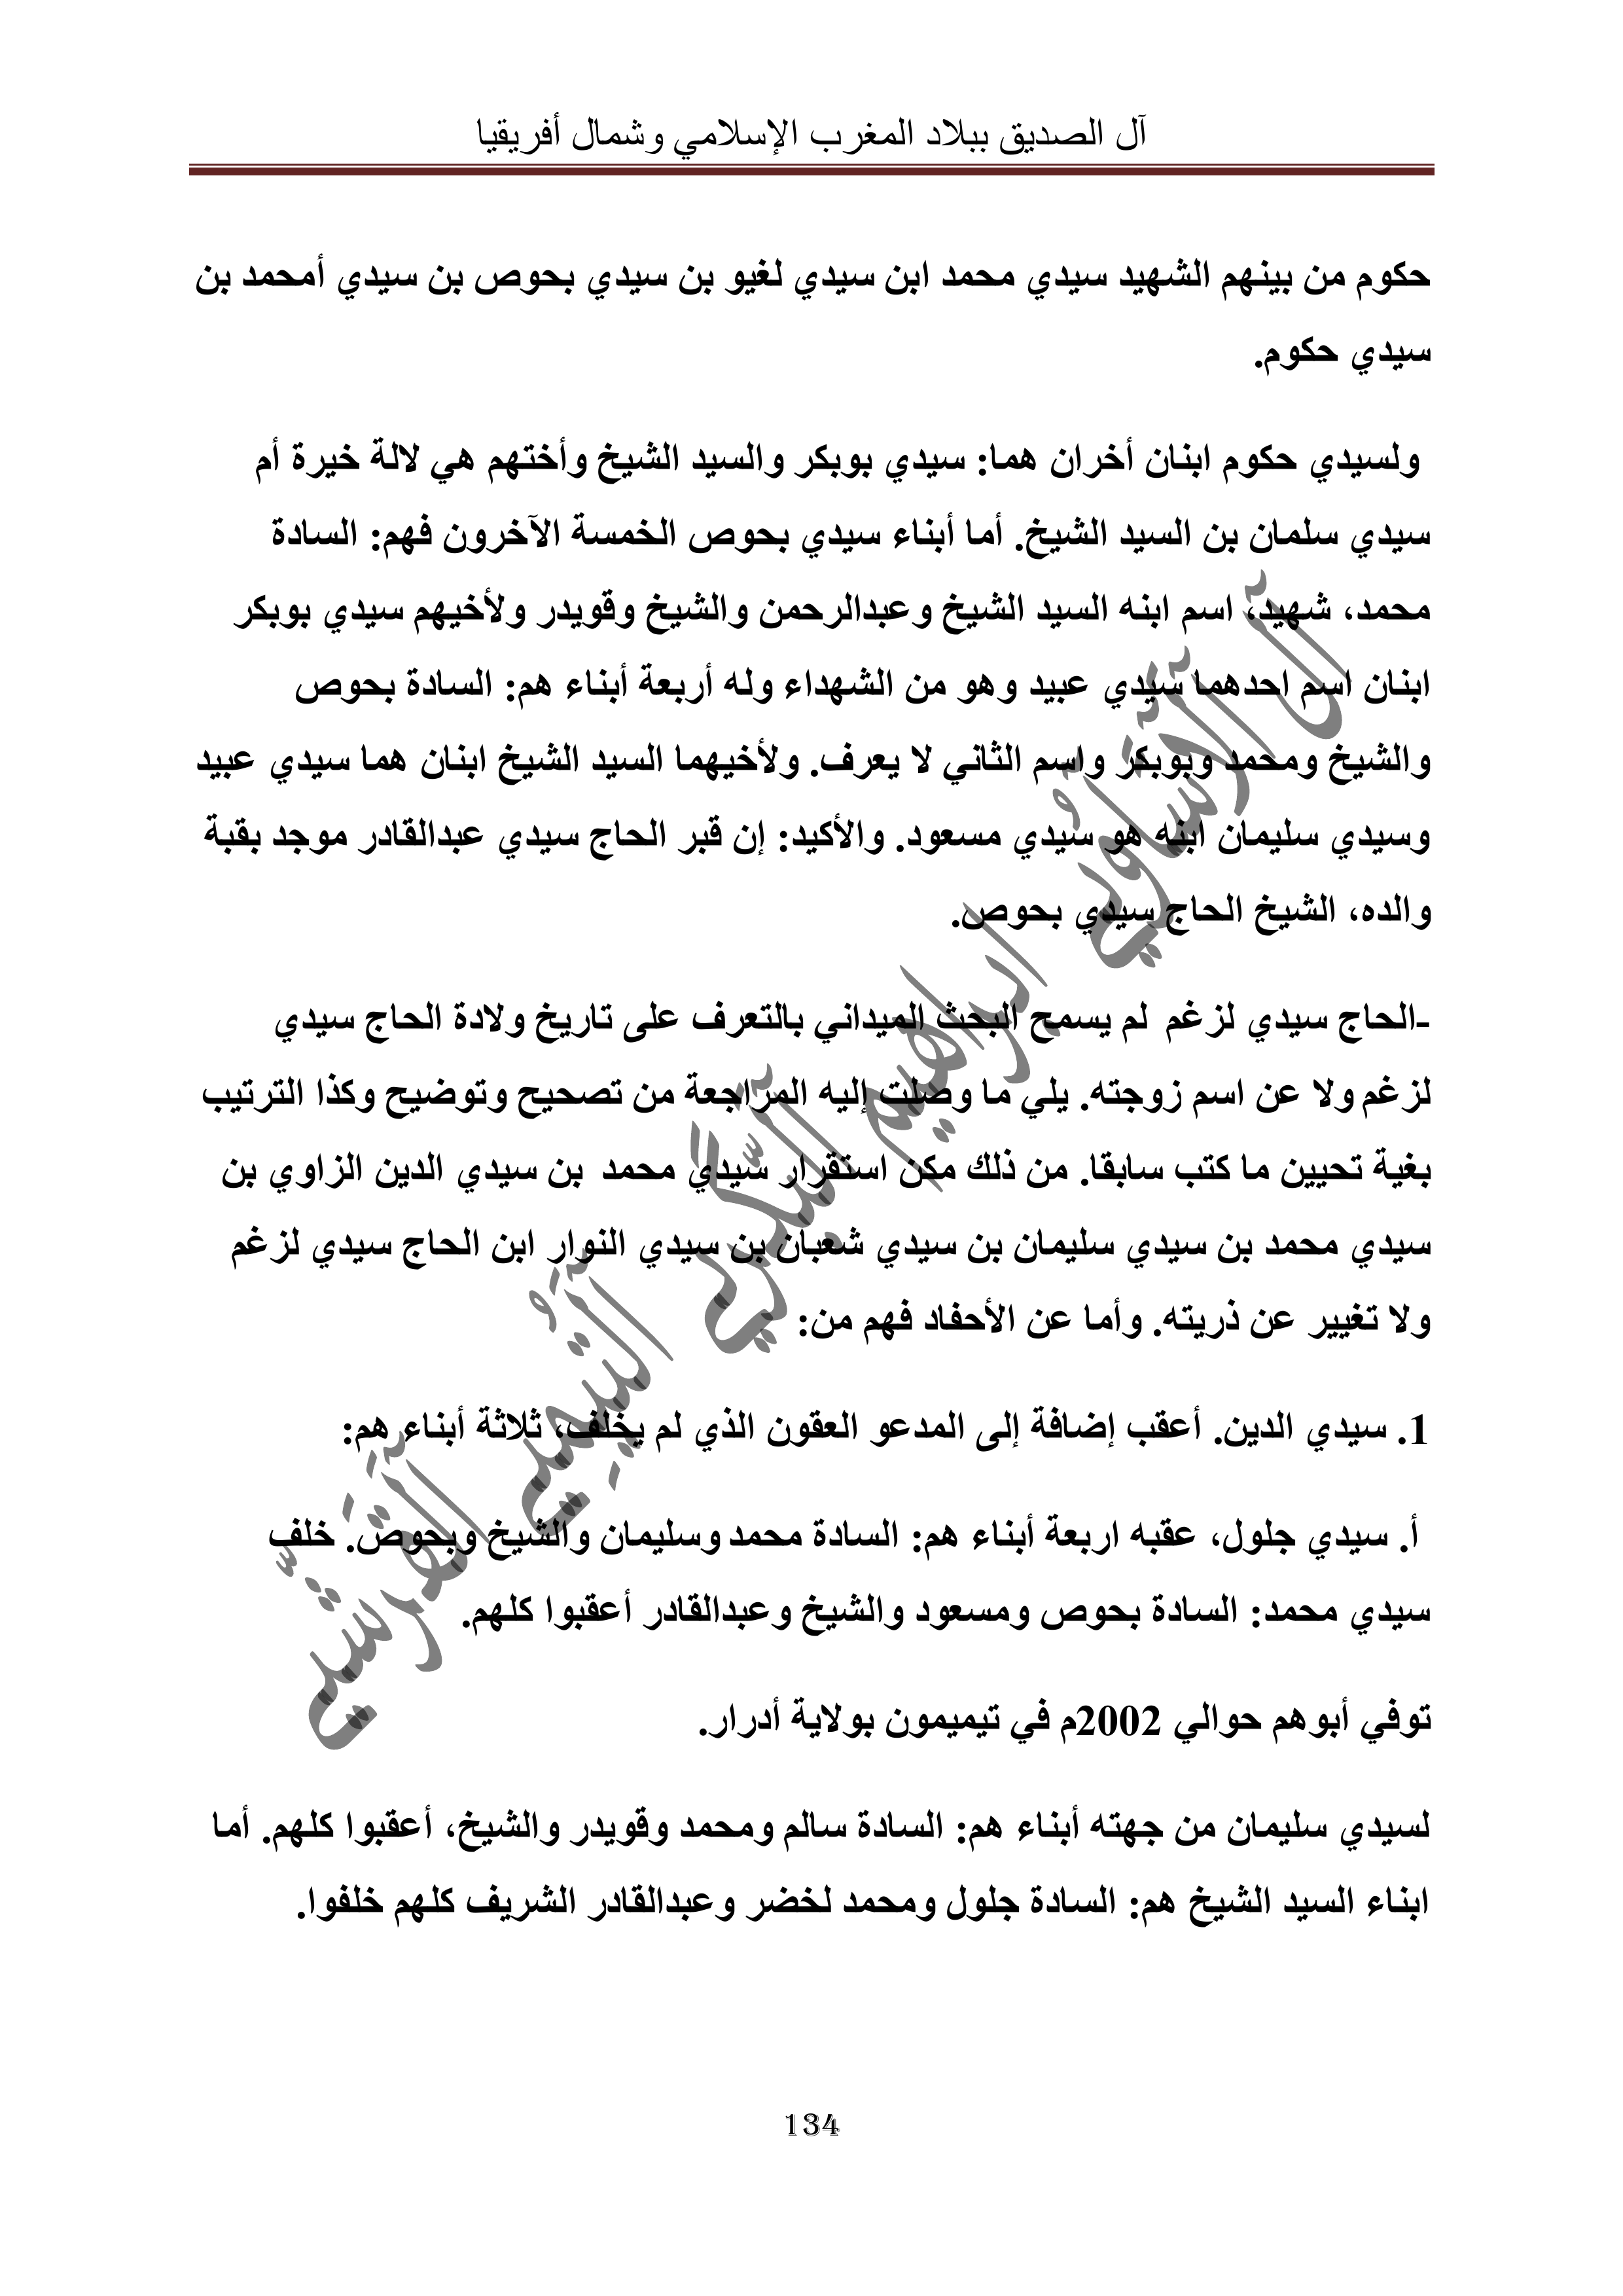 آل الصديق ببلاد المغرب الإسلامي وشمال أفريقيا
حكوم من بينهم الشهيد سيدي محمد ابن سيدي لغيو بن سيدي بحوص بن سيدي أمحمد بن
سيدي حكوم.
ولسيدي حكوم ابنان أخران هما: سيدي بوبكر والسيد الشيخ وأختهم هي لالة خيرة أم
سيدي سلمان بن السيد الشيخ. أما أبناء سيدي بحوص الخمسة الآخرون فهم: السادة
محمد، شهيد، اسم ابنه السيد الشيخ وعبدالرحمن والشيخ وقويدر ولأخيهم سيدي بوبكر
ابنان اسم احدهما سيدي عبيد وهو من الشهداء وله أربعة أبناء هم: السادة بحوص
والشيخ ومحمد وبوبكر واسم الثاني لا يعرف. ولأخيهما السيد الشيخ ابنان هما سيدي عبيد
وسيدي سليمان ابنه هو سيدي مسعود. والأكيد: إن قبر الحاج سيدي عبدالقادر موجد بقبة
والده، الشيخ الحاج سيدي بحوص.
-الحاج سيدي لزغم لم يسمح البحث الميداني بالتعرف على تاريخ ولادة الحاج سيدي
لزغم ولا عن اسم زوجته. يلي ما وصلت إليه المراجعة من تصحيح وتوضيح وكذا الترتيب
بغية تحيين ما كتب سابقا. من ذلك مكن استقرار سيدي محمد بن سيدي الدين الزاوي بن
سيدي محمد بن سيدي سليمان بن سيدي شعبان بن سيدي النوار ابن الحاج سيدي لزغم
ولا تغيير عن ذريته. وأما عن الأحفاد فهم من:
1. سيدي الدين. أعقب إضافة إلى المدعو العقون الذي لم يخلف، ثلاثة أبناء هم:
أ. سيدي جلول، عقبه اربعة أبناء هم: السادة محمد وسليمان والشيخ وبحوص. خلف
سيدي محمد: السادة بحوص ومسعود والشيخ وعبدالقادر أعقبوا كلهم.
توفي أبوهم حوالي 2002م في تيميمون بولاية أدرار.
لسيدي سليمان من جهته أبناء هم: السادة سالم ومحمد وقويدر والشيخ، أعقبوا كلهم. أما
ابناء السيد الشيخ هم: السادة جلول ومحمد لخضر وعبدالقادر الشريف كلهم خلفوا.
134